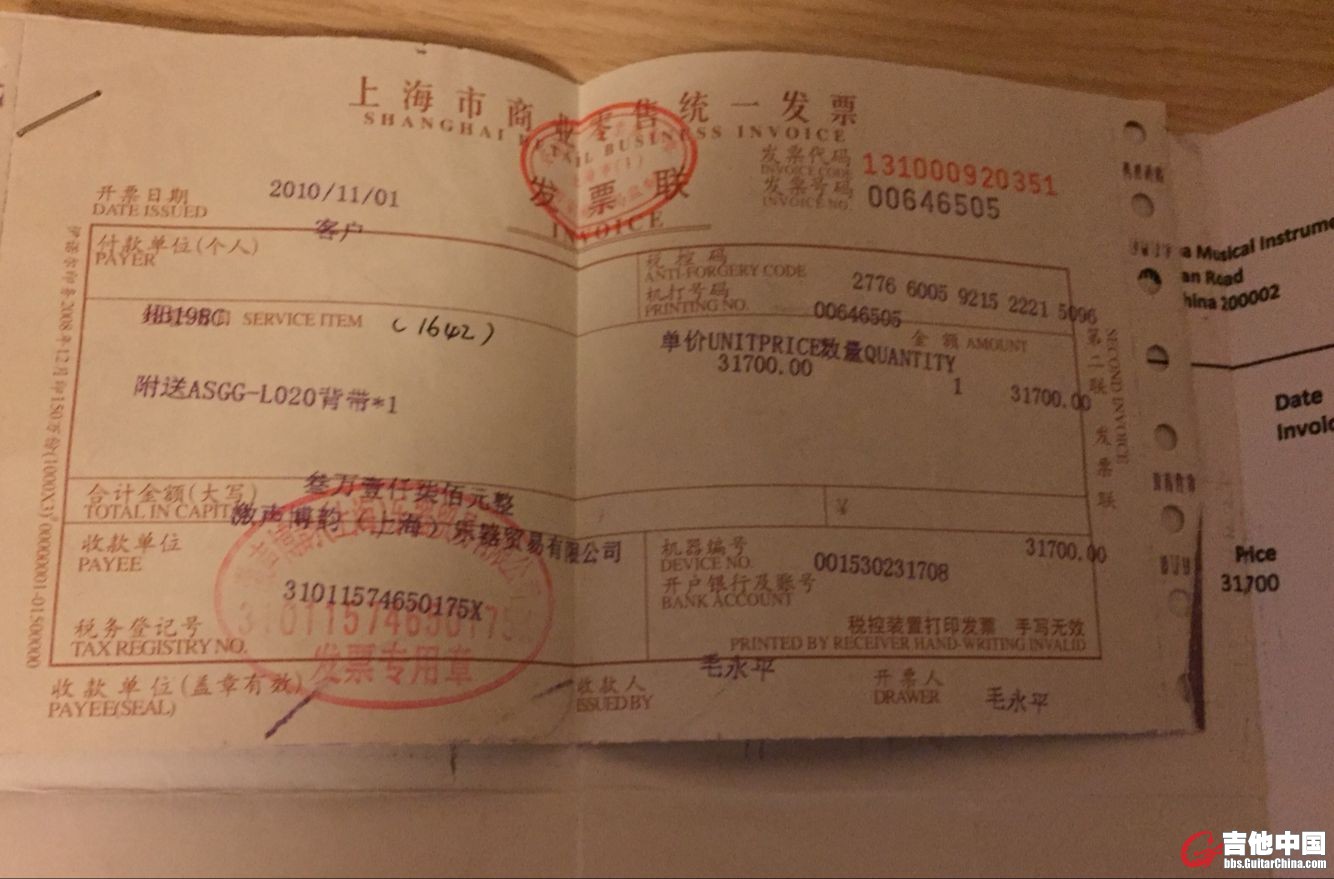 上海市商业零售统一发票
SHANGHAI RETAIL BUSINESS INVOICE
发票联
INVOICE
发票代码 131000920351
INVOICE CODE
发票号码 00646505
INVOICE NO.
开票日期 2010/11/01
DATE ISSUED
客户
付款单位(个人)
PAYER
税控码
ANTI-FORGERY CODE 2776 6005 9215 2221 5096
机打号码
PRINTING NO. 00646505
HB198G SERVICE ITEM (1642)
单价UNITPRICE数量QUANTITY 金额 AMOUNT
31700.00 1 31700.00
附送ASGG-L020背带*1
合计金额(大写) 叁万壹仟柒佰元整
TOTAL IN CAPITAL
¥
31700.00
收款单位 激声博韵(上海)乐器贸易有限公司
PAYEE
机器编号
DEVICE NO. 001530231708
开户银行及账号
BANK ACCOUNT
31011574650175X
税务登记号
TAX REGISTRY NO.
31011574650175
发票专用章
税控装置打印发票 手写无效
PRINTED BY RECEIVER HAND-WRITING INVALID
收款单位(盖章有效)
PAYEE(SEAL)
收款人 毛永平
ISSUED BY
开票人 毛永平
DRAWER
第二联 发票联
SECOND INVOICE
a Musical Instrume
an Road
hina 200002
Date
Invoic
Price
31,700
吉他中国
bbs.GuitarChina.com